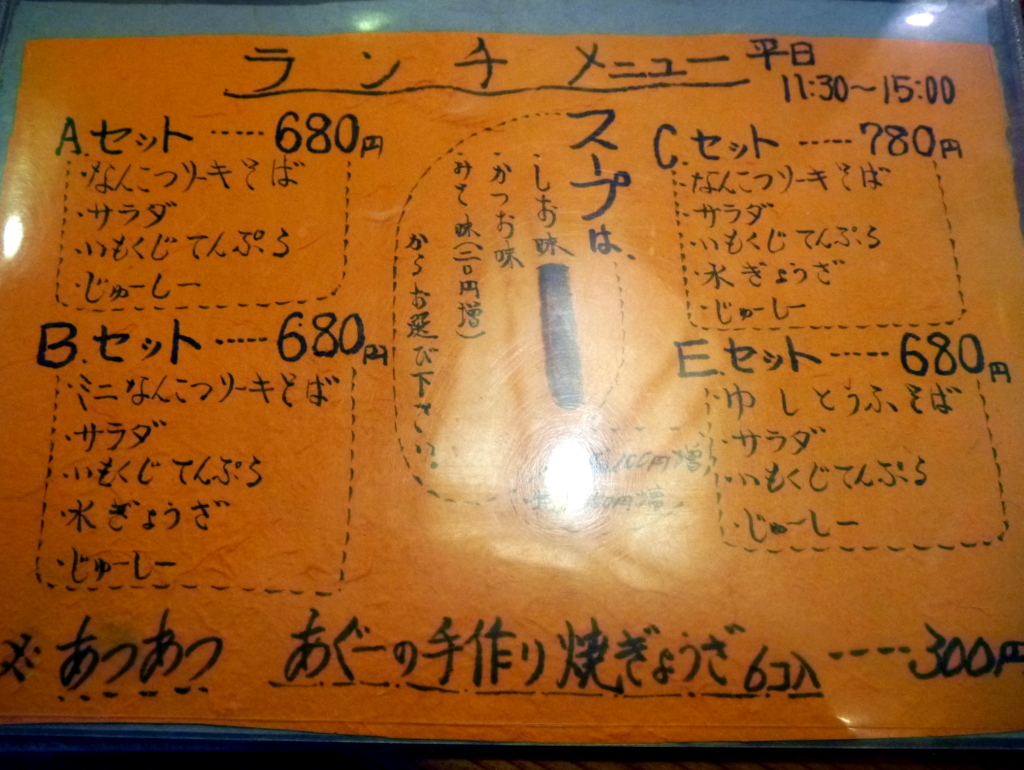 ランチメニュー 平日
11:30～15:00
A.セット ····· 680円
・なんこつソーキそば
・サラダ
・いもくじてんぷら
・じゅーしー
B.セット ····· 680円
・ミニなんこつソーキそば
・サラダ
・いもくじてんぷら
・水ぎょうざ
・じゅーしー
スープは、
・しお味
かつお味
みそ味(二〇円増)
からお選び下さい。
C.セット ····· 780円
・なんこつソーキそば
・サラダ
・いもくじてんぷら
・水ぎょうざ
・じゅーしー
E.セット ····· 680円
・ゆしとうふそば
・サラダ
・いもくじてんぷら
・じゅーしー
100円増
円増
※あつあつ あぐーの手作り焼ぎょうざ6コ入 ---- 300円